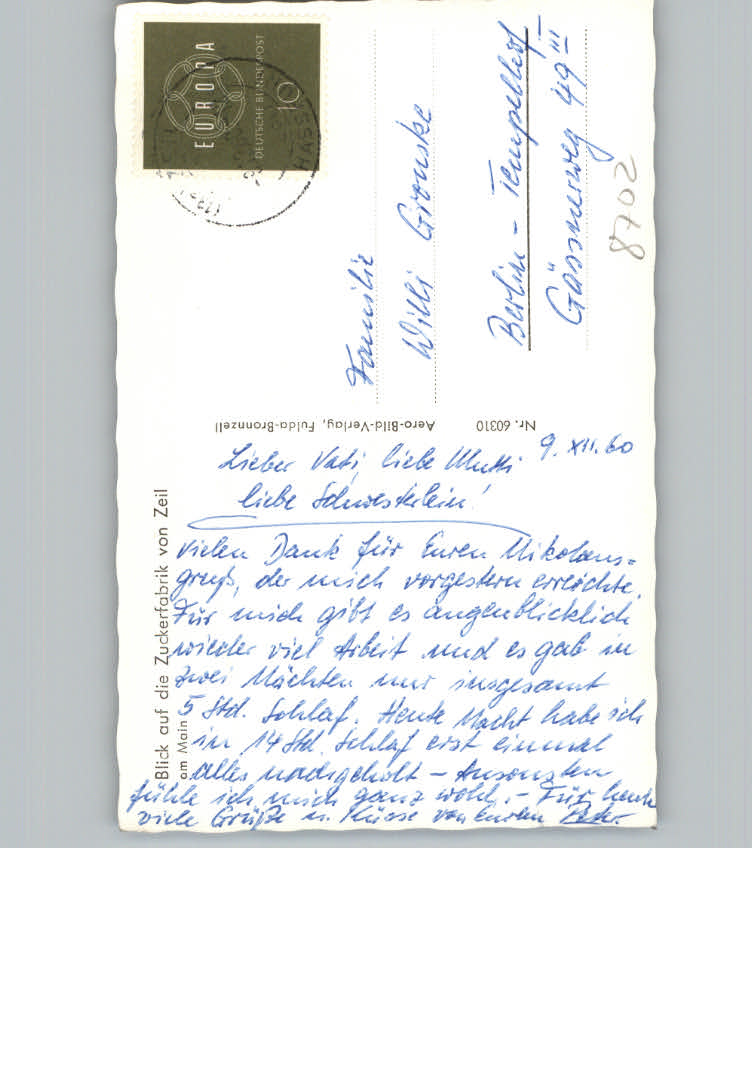 EUROPA
DEUTSCHE BUNDESPOST
10
HASS
Familie
Willi Gronske
Berlin - Tempelhof
Gässnerweg 49 III
8702
Aero-Bild-Verlag, Fulda-Bronnzell
Nr. 60310
Blick auf die Zuckerfabrik von Zeil
am Main
9. XII. 60
Lieber Vati, liebe Mutti
liebe Schwesterlein!
vielen Dank für Euren Nikolaus-
gruß, der mich vorgestern erreichte.
Für mich gibt es augenblicklich
wieder viel Arbeit und es gab in
zwei Nächten nur insgesamt
5 Std. Schlaf. Heute Nacht habe ich
in 14 Std. Schlaf erst einmal
alles nachgeholt – Ansonsten
fühle ich mich ganz wohl. – Für heute
viele Grüße u. Küsse von Eurem Peter.